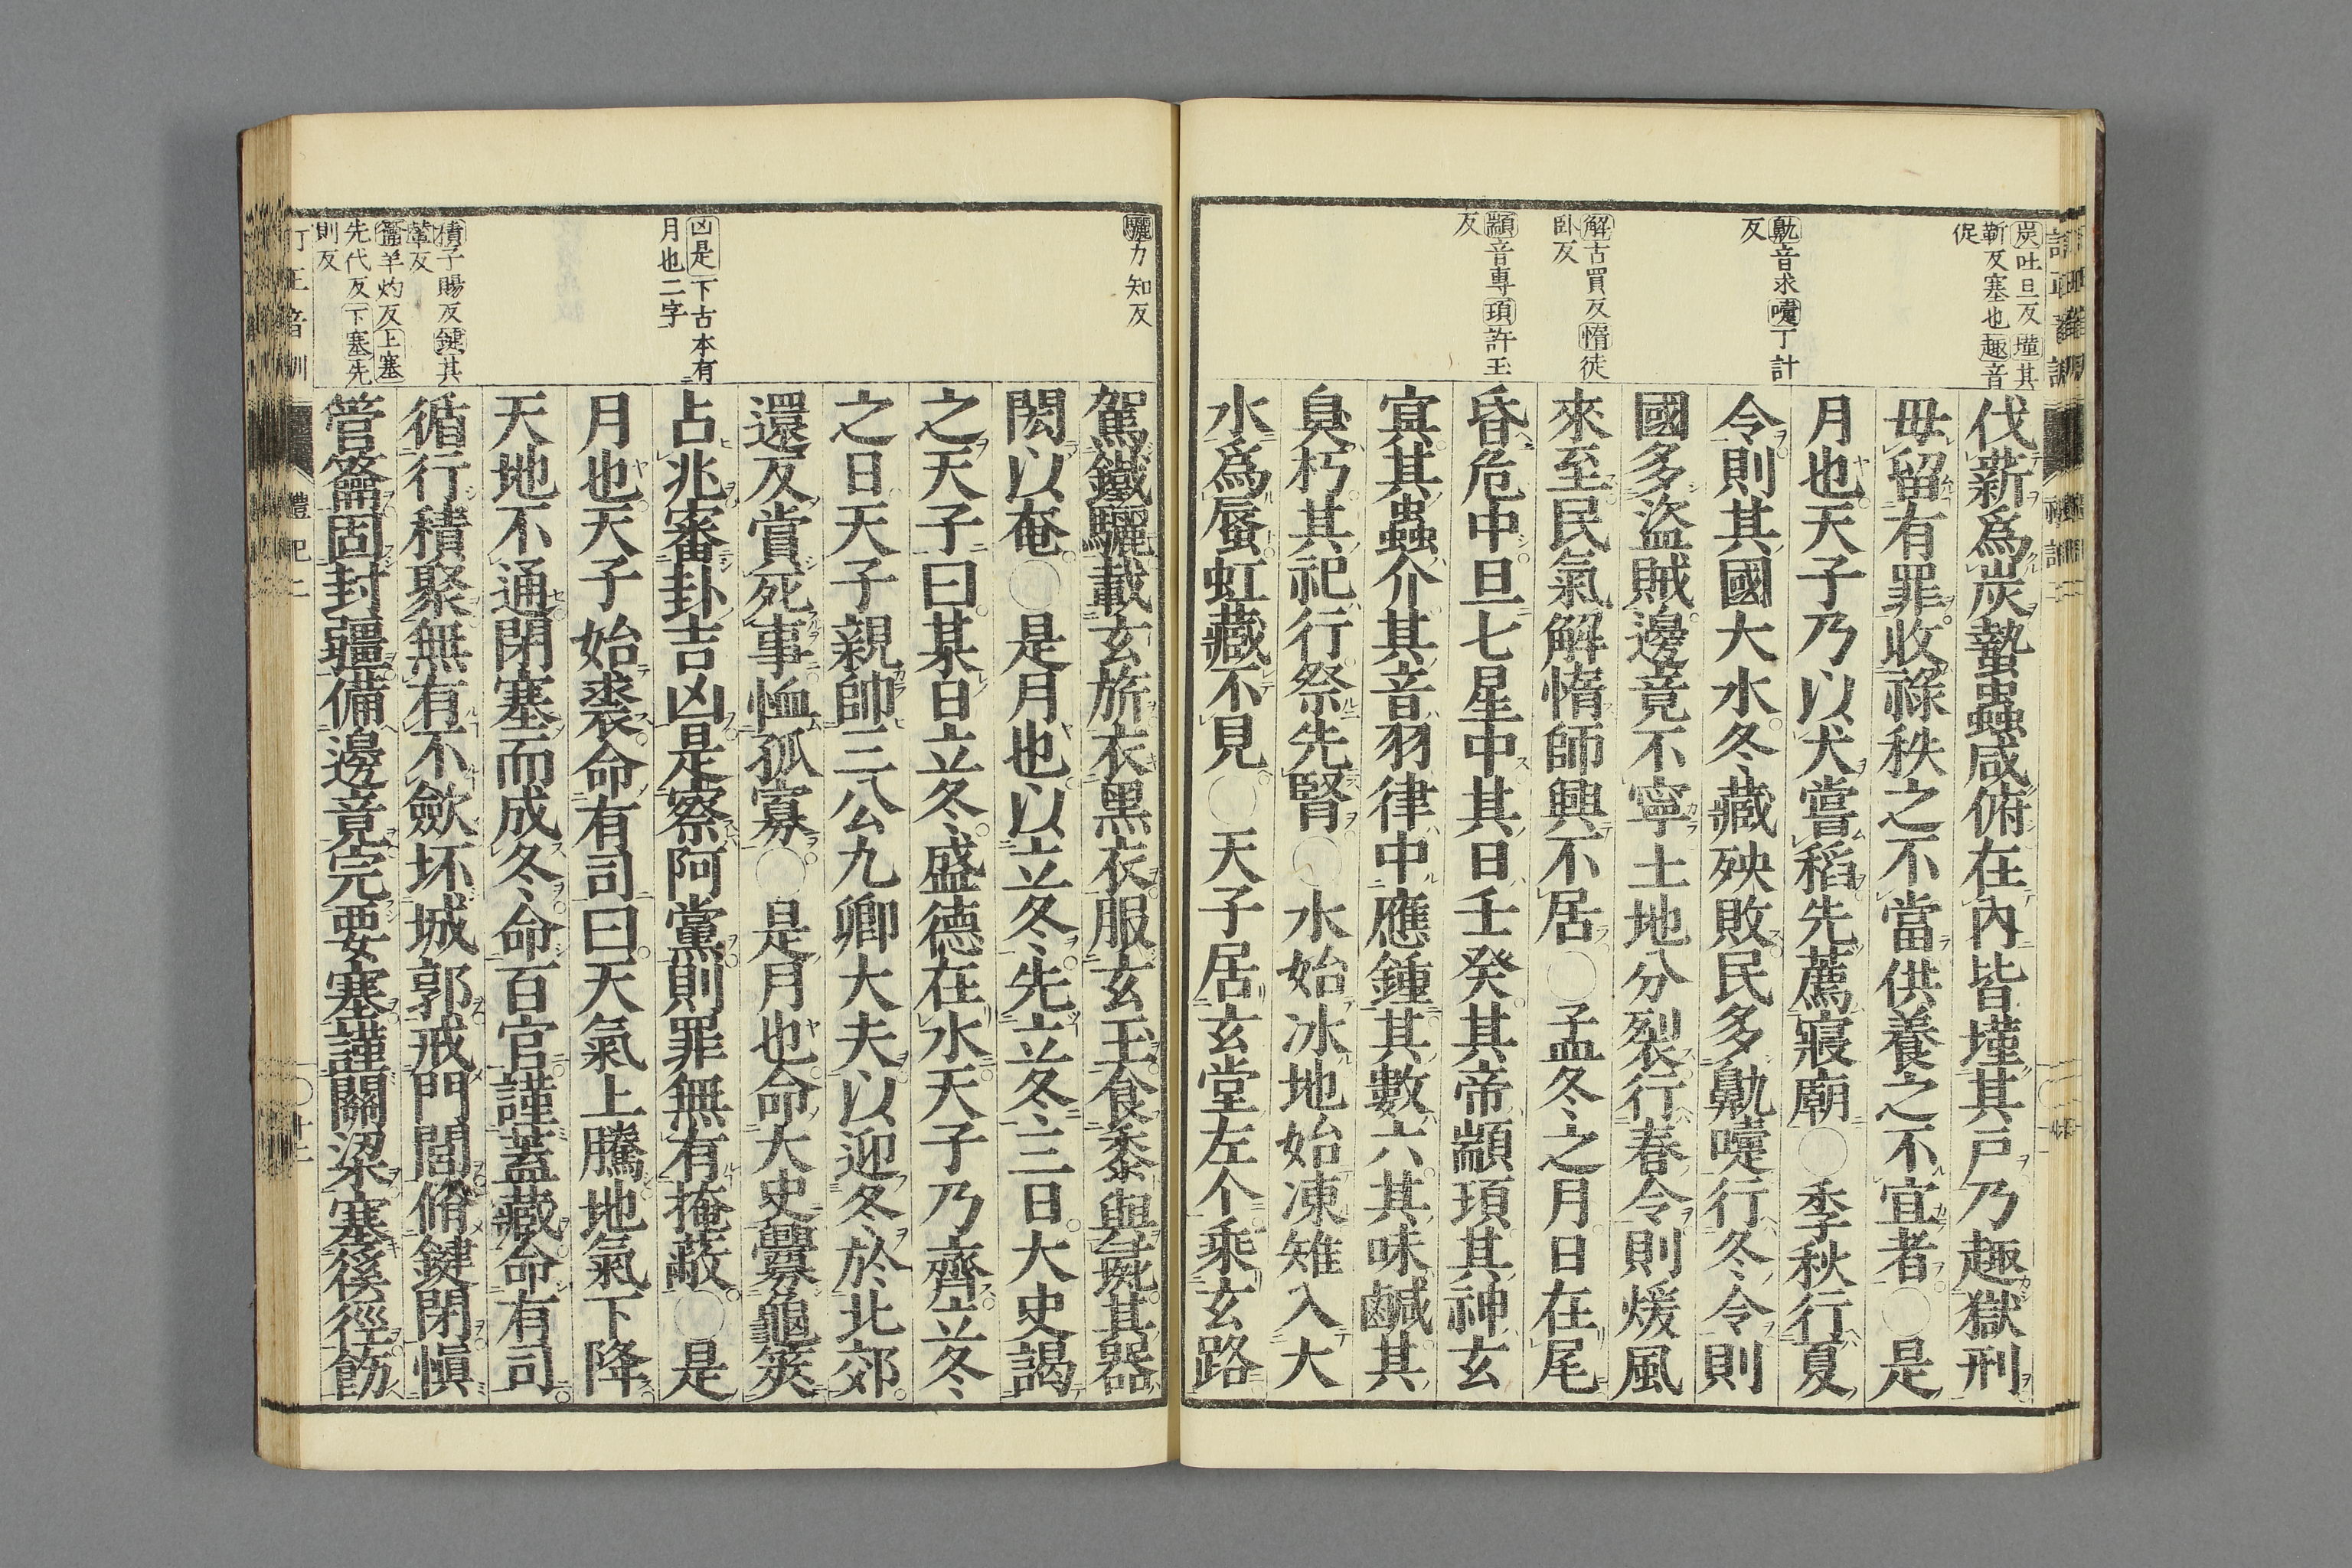 炭吐旦反墐其
靳反塞也趣音
促
鼽音求嚏丁計
反
解古買反惰徒
臥反
顓音專頊許玉
反
伐薪爲炭蟄蟲咸俯在內皆墐其戶乃趣獄刑
毋留有罪收祿秩之不當供養之不宜者○是
月也天子乃以犬嘗稻先薦寢廟○季秋行夏
令則其國大水冬藏殃敗民多鼽嚏行冬令則
國多盜賊邊竟不寧土地分裂行春令則煖風
來至民氣解惰師興不居○孟冬之月日在尾
昏危中旦七星中其日壬癸其帝顓頊其神玄
冥其蟲介其音羽律中應鍾其數六其味鹹其
臭朽其祀行祭先腎○水始冰地始凍雉入大
水爲蜃虹藏不見○天子居玄堂左个乘玄路
驪力知反
凶是下古本有
月也二字
積子賜反鍵其
輦反
籥羊灼反上塞
先代反下塞先
則反
駕鐵驪載玄旂衣黑衣服玄玉食黍與彘其器
閎以奄○是月也以立冬先立冬三日大史謁
之天子曰某日立冬盛德在水天子乃齊立冬
之日天子親帥三公九卿大夫以迎冬於北郊
還反賞死事恤孤寡○是月也命大史釁龜筴
占兆審卦吉凶是察阿黨則罪無有掩蔽○是
月也天子始裘命有司曰天氣上騰地氣下降
天地不通閉塞而成冬命百官謹蓋藏命有司
循行積聚無有不歛坏城郭戒門閭脩鍵閉愼
管籥固封疆備邊竟完要塞謹關梁塞徯徑飭
訂正音訓
禮記二